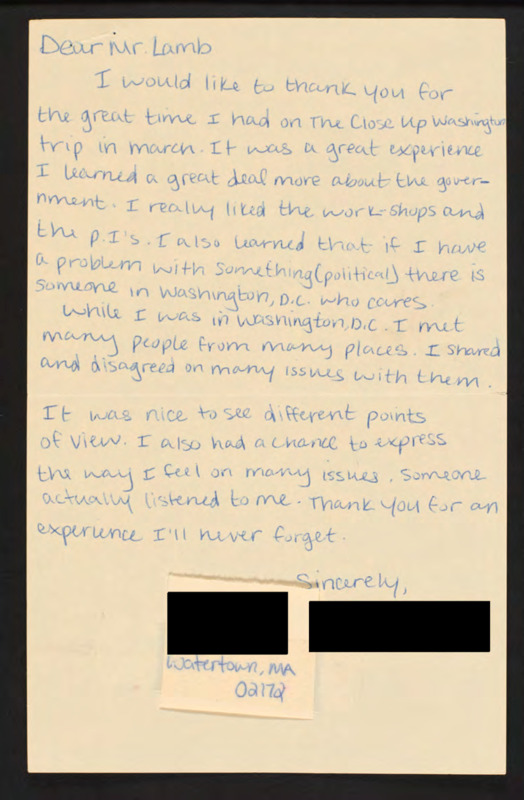 Dear Mr. Lamb
I would like to thank you for
the great time I had on The Close Up Washington
trip in march. It was a great experience
I learned a great deal more about the gover-
nment. I really liked the work-shops and
the P.I's. I also learned that if I have
a problem with something (political) there is
someone in Washington, D.C. who cares.
While I was in Washington, D.C. I met
many people from many places. I shared
and disagreed on many issues with them.
It was nice to see different points
of view. I also had a chance to express
the way I feel on many issues. Someone
actually listened to me. Thank you for an
experience I'll never forget.
Sincerely,
Watertown, MA
02172